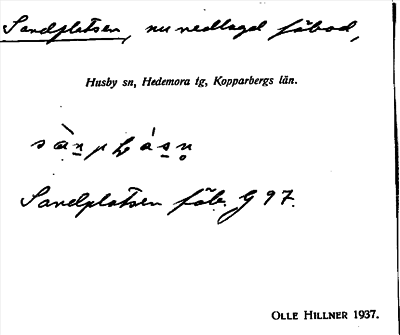 Sandplatsen, nu nedlagd fäbod,
Husby sn, Hedemora tg, Kopparbergs län.
Sandplatsen fäb. G 97.
OLLE HILLNER 1937.